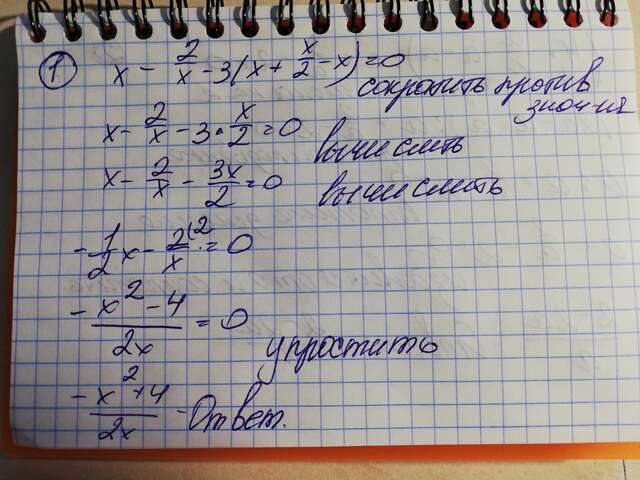 1 x - 2/x - 3(x + x/2 - x) = 0
сократить против
знач-ия
x - 2/x - 3 · x/2 = 0 вычислить
x - 2/x - 3x/2 = 0 вычислить
- 1/2 x - 2(2/x = 0
- x² - 4 / 2x = 0
упростить
- x² + 4 / 2x - Ответ.